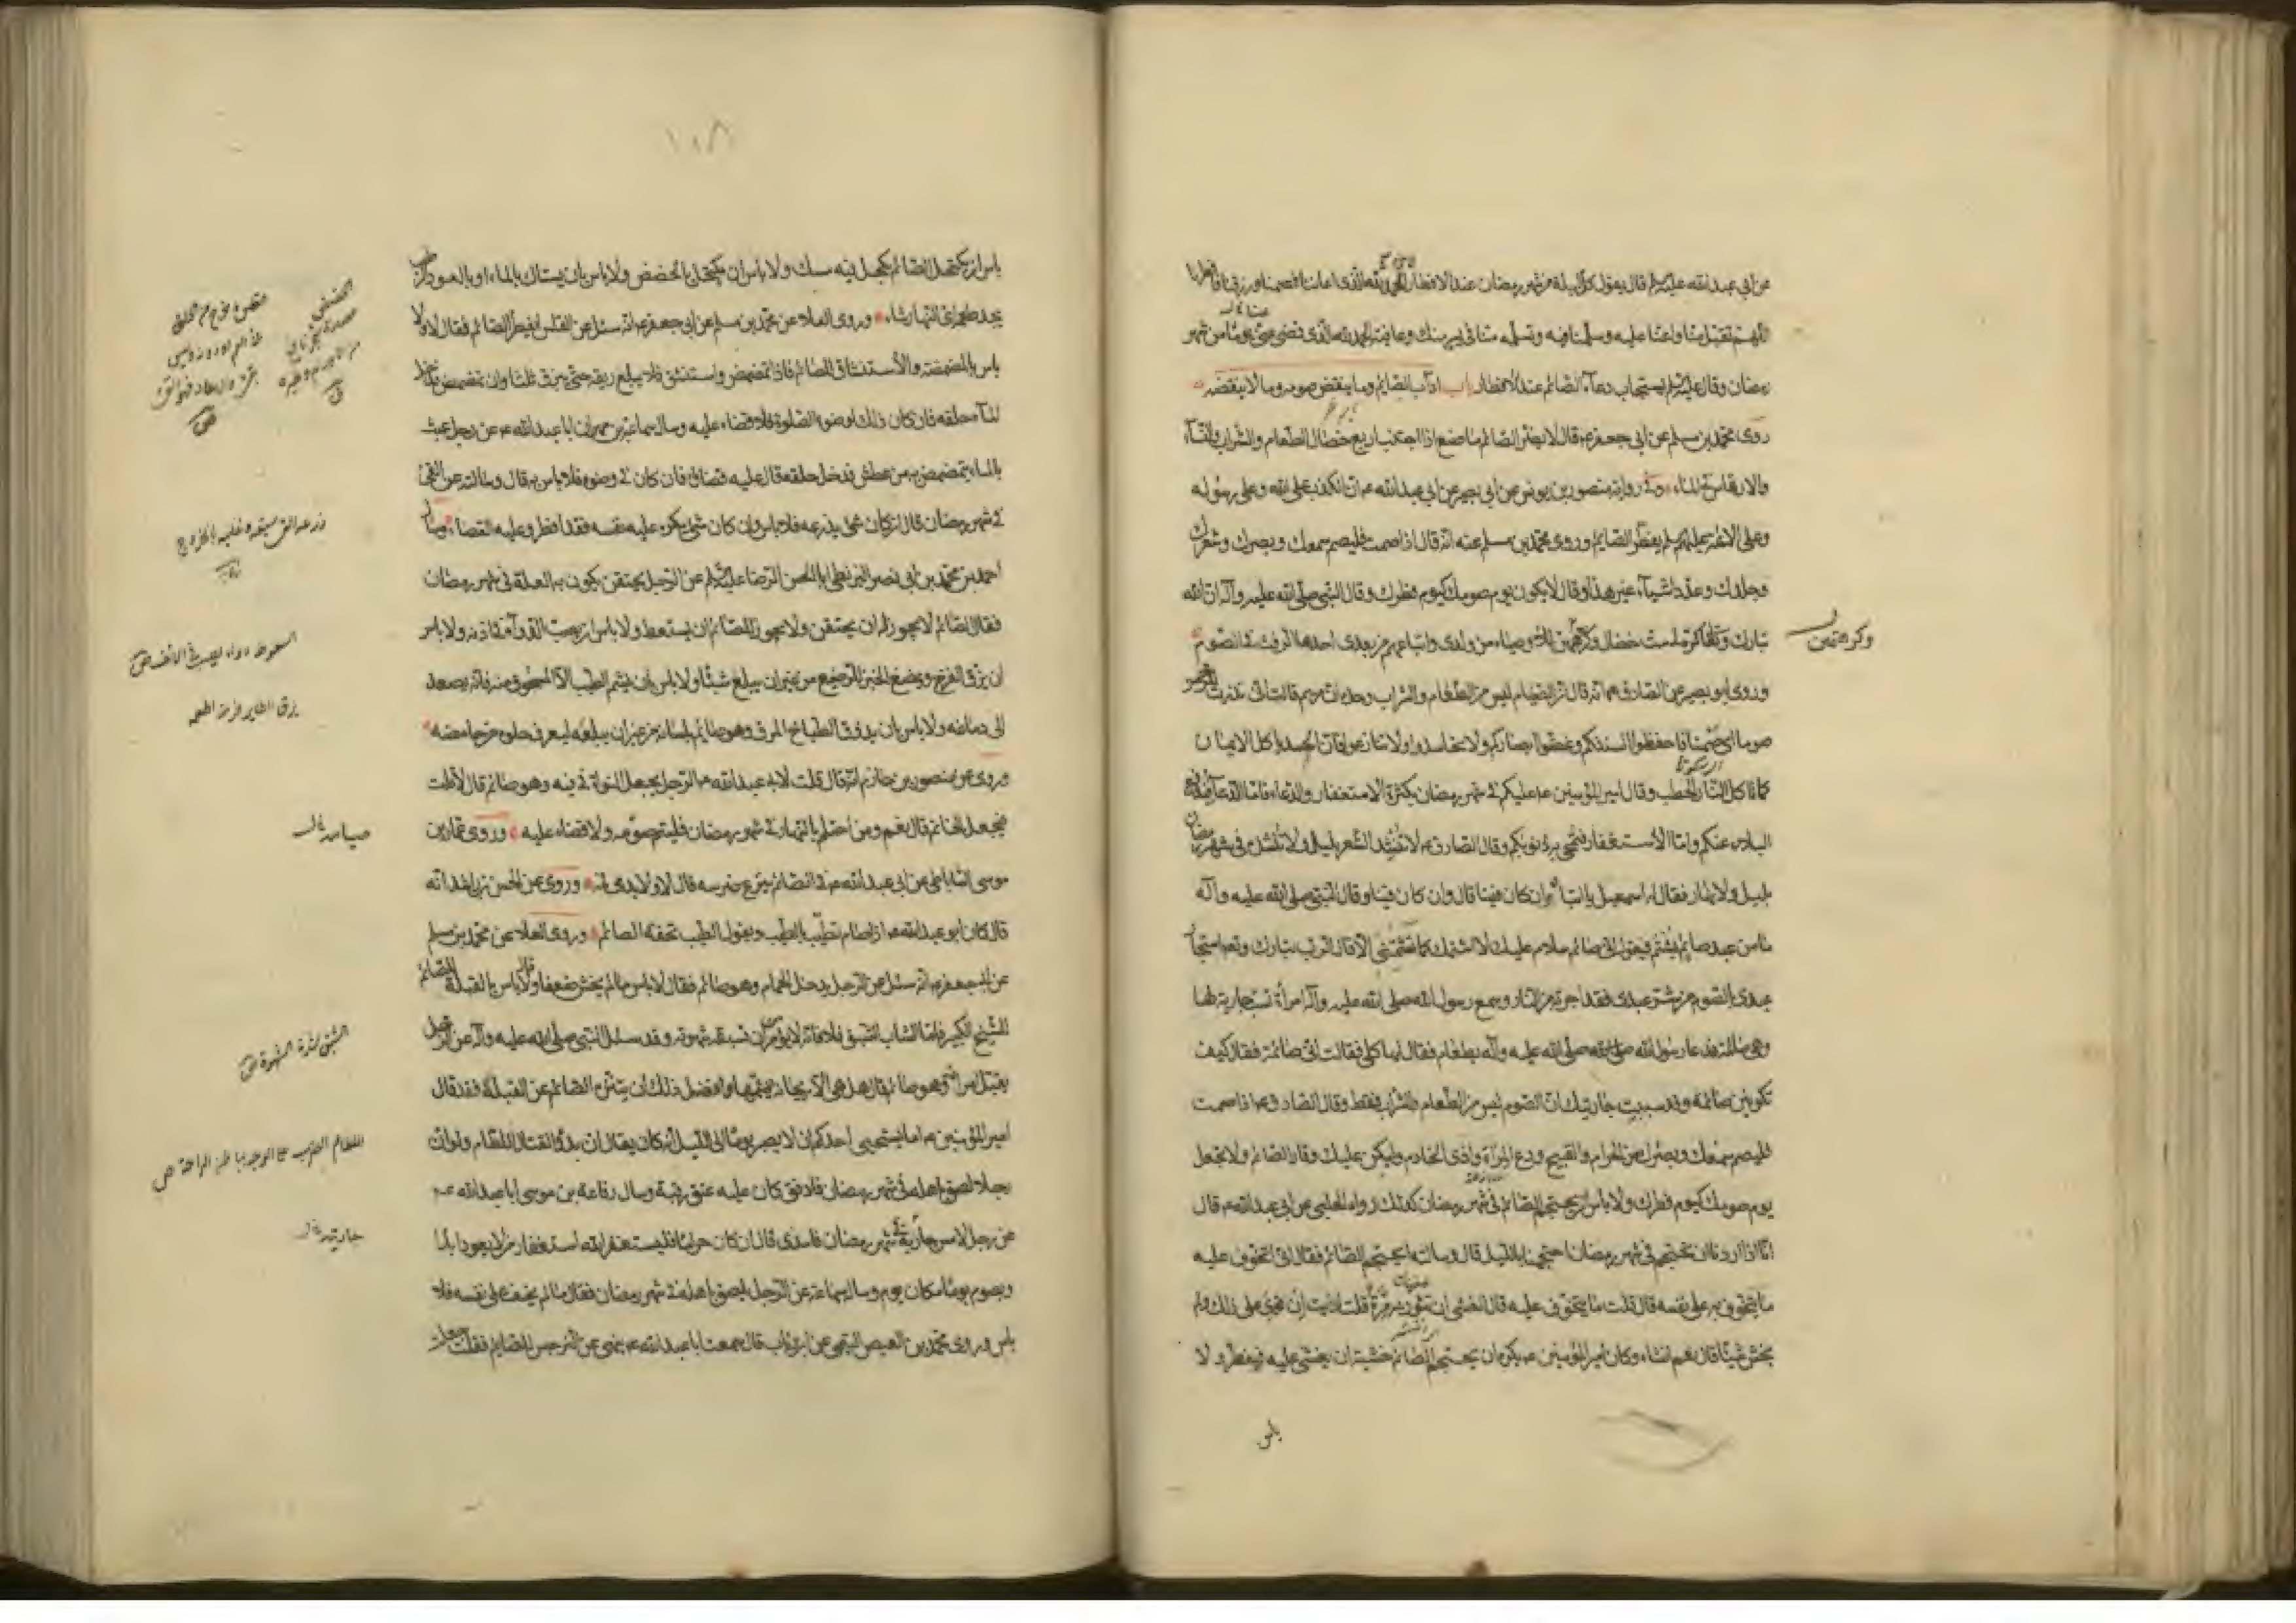 عن ابي عبد الله عليه السلم قال يقول كل ليلة من شهر رمضان عند الافطار الحمد لله الذي اعاننا فصمنا ورزقنا فافطرنا
اللهم تقبل منا واعنا عليه وسلمنا فيه وتسلمه منا في يسر منك وعافية الحمد لله الذي قضى عني يوما من شهر
رمضان وقال عليه السلم يستجاب دعاء الصائم عند الافطار باب اداب الصائم وما ينقض صومه وما لا ينقضه
روى محمد بن مسلم عن ابي جعفر ع قال لا يضر الصائم ما صنع اذا اجتنب اربع خصال الطعام والشراب والنساء
والارتماس في الماء وفي رواية منصور بن يونس عن ابي بصير عن ابي عبد الله ع ان الكذب على الله وعلى رسوله
وعلى الائمة عليهم السلم يفطر الصايم وروى محمد بن مسلم عنه انه قال اذا صمت فليصم سمعك وبصرك وشعرك
وجلدك وعدد اشياء غير هذا وقال لا يكون يوم صومك كيوم فطرك وقال النبي صلى الله عليه وآله ان الله
تبارك وتعالى كره لي ست خصال وكرهتهن للاوصياء من ولدي واتباعهم من بعدي احدها الرفث في الصوم
وكرهتهن
وروى ابو بصير عن الصادق ع انه قال ان الصيام ليس من الطعام والشراب وحده ان مريم قالت اني نذرت للرحمن
صوما اي صمتا فاحفظوا السنتكم وغضوا ابصاركم ولا تحاسدوا ولا تنازعوا فان الحسد ياكل الايمان
كما تاكل النار الحطب وقال امير المؤمنين ع عليكم في شهر رمضان بكثرة الاستغفار والدعاء فاما الدعاء فيدفع
البلاء عنكم واما الاستغفار فتمحى به ذنوبكم وقال الصادق ع لا تنشد الشعر بليل ولا تنشد في شهر رمضان
بليل ولا نهار فقال له اسمعيل يا ابتاه وان كان فينا قال وان كان فينا وقال النبي صلى الله عليه وآله
ما من عبد صائم يشتم فيقول اني صائم سلام عليك لا اشتمك كما تشتمني الا قال الرب تبارك وتعالى استجار
عبدي بالصوم من شر عبدي فقد اجرته من النار وسمع رسول الله صلى الله عليه وآله امرأة تسب جارية لها
وهي صائمة فدعا رسول الله صلى الله عليه وآله بطعام فقال لها كلي فقالت اني صائمة فقال كيف
تكونين صائمة وقد سببت جاريتك ان الصوم ليس من الطعام والشراب فقط وقال الصادق ع اذا صمت
فليصم سمعك وبصرك من الحرام والقبيح ودع المراء واذى الخادم وليكن عليك وقار الصائم ولا تجعل
يوم صومك كيوم فطرك ولا باس ان يحتجم الصائم في شهر رمضان كذلك رواه الحلبي عن ابي عبد الله ع قال
انا اذا اردنا ان نحتجم في شهر رمضان احتجمنا بالليل قال وسالته ايحتجم الصائم فقال اني اتخوف عليه
ما يتخوف به على نفسه قال قلت ما يتخوف عليه قال الغشي ان تثور به مرة قلت ارايت ان قوي على ذلك ولم
يخش شيئا قال نعم ان شاء وكان امير المؤمنين ع يكره ان يحتجم الصائم خشية ان يغشى عليه فيفطر ولا
باس
١٠٨
باس ان يكتحل الصائم بكحل فيه مسك ولا باس ان يكتحل بالحضض ولا باس بان يستاك بالماء او بالعود الرطب
يجد طعمه اي النهار شاء وروى العلاء عن محمد بن مسلم عن ابي جعفر ع انه سئل عن القلس ايفطر الصائم فقال لا ولا
باس بالمضمضة والاستنشاق للصائم فاذا تمضمض واستنشق فلا يبلع ريقه حتى يبزق ثلثا وان تمضمض فدخل
الماء حلقه فان كان ذلك لوضوء الصلوة فلا قضاء عليه وسال سماعة بن مهران ابا عبد الله ع عن رجل عبث
بالماء يتمضمض به من عطش فدخل حلقه قال عليه قضاؤه فان كان في وضوء فلا باس به قال وسالته عن القئ
في شهر رمضان قال ان كان شئ يذرعه فلا باس وان كان شئ يكره عليه نفسه فقد افطر وعليه القضاء وسال
احمد بن محمد بن ابي نصر البزنطي ابا الحسن الرضا عليه السلم عن الرجل يحتقن يكون به العلة في شهر رمضان
فقال الصائم لا يجوز له ان يحتقن ولا يجوز للصائم ان يستعط ولا باس ان يصب الدواء في اذنه ولا باس
ان يزق الفرخ ويمضغ الخبز للرضيع من غير ان يبلع شيئا ولا باس بان يشم الطيب الا المسحوق منه فانه يصعد
الى دماغه ولا باس بان يذوق الطباخ المرق وهو صايم بلسانه من غير ان يبلعه ليعرف حلوه من حامضه
وروى عن منصور بن حازم انه قال قلت لابي عبد الله ع الرجل يجعل النواة في فيه وهو صائم قال لا قلت
فيجعل الخاتم قال نعم ومن احتلم بالنهار في شهر رمضان فليتم صومه ولا قضاء عليه وروى عمار بن
موسى الساباطي عن ابي عبد الله ع في الصائم ينزع ضرسه قال لا ولا يدمي فمه وروى عن الحسن بن راشد انه
قال كان ابو عبد الله ع اذا صام تطيب بالطيب ويقول الطيب تحفة الصائم وروى العلاء عن محمد بن مسلم
عن ابي جعفر ع انه سئل عن الرجل يدخل الحمام وهو صائم فقال لا باس ما لم يخش ضعفا ولا باس بالقبلة للصائم
للشيخ الكبير فاما الشاب الشبق فلا فانه لا يؤمن ان تسبقه شهوته وقد سئل النبي صلى الله عليه وآله عن الرجل
يقبل امراته وهو صائم قال هل هي الا ريحانة يشمها وافضل ذلك ان يتنزه الصائم عن القبلة فقد قال
امير المؤمنين ع اما يستحيي احدكم ان لا يصبر يوما الى الليل انه كان يقال ان بدؤ القتال اللطام ولو ان
رجلا لصق باهله في شهر رمضان فادفق كان عليه عتق رقبة وسال رفاعة بن موسى ابا عبد الله ع
عن رجل لامس جارية في شهر رمضان فامذى قال ان كان حراما فليستغفر الله استغفار من لا يعود ابدا
ويصوم يوما مكان يوم وسال سماعة عن الرجل يلصق باهله في شهر رمضان فقال ما لم يخف على نفسه فلا
باس وروى محمد بن الفيض التيمي عن ابن رئاب قال سمعت ابا عبد الله ع ينهى عن النرجس للصايم فقلت
السعوط دواء يصب في الانف ص
زق الطاير فرخه اطعمه
صيامه خ ل
الشبق شدة الشهوة ص
اللطام الضرب على الوجه بباطن الراحة ص
جاريته خ ل